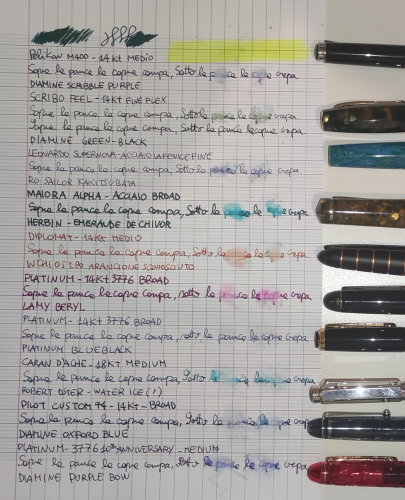 Pelikan M400 - 14kt MEDIO
Sopra la panca la capra campa, Sotto la panca la capra crepa
DIAMINE SCRIBBLE PURPLE
SCRIBO FEEL - 14kt FINE FLEX
Sopra la panca la capra campa, Sotto la panca la capra crepa
Sopra la panca la capra campa, Sotto la panca la capra crepa
DIAMINE GREEN-BLACK
LEONARDO SUPERNOVA - ACCIAIO FINE
Sopra la panca la capra campa, Sotto la panca la capra crepa
SAILOR KAKITSUBATA
MAIORA ALPHA - ACCIAIO BROAD
Sopra la panca la capra campa, Sotto la panca la capra crepa
HERBIN - EMERAUDE DE CHIVOR
DIPLOMAT - 14kt MEDIO
Sopra la panca la capra campa, Sotto la panca la capra crepa
ARANCIONE
PLATINUM - 14KT 3776 BROAD
Sopra la panca la capra campa, sotto la panca la capra crepa
LAMY BERYL
PLATINUM - 14KT 3776 BROAD
Sopra la panca la capra campa, sotto la panca la capra crepa
PLATINUM BLUEBLACK
CARAN D'ACHE - 18KT MEDIUM
Sopra la panca la capra campa, Sotto la panca la capra crepa
ROBERT OSTER - WATER ICE (!)
PILOT CUSTOM 74 - 14KT - BROAD
Sopra la panca la capra campa, Sotto la panca la capra crepa
DIAMINE OXFORD BLUE
PLATINUM - 3776 10th ANNIVERSARY - MEDIUM
Sopra la panca la capra campa, Sotto la panca la capra crepa
DIAMINE PURPLE BOW